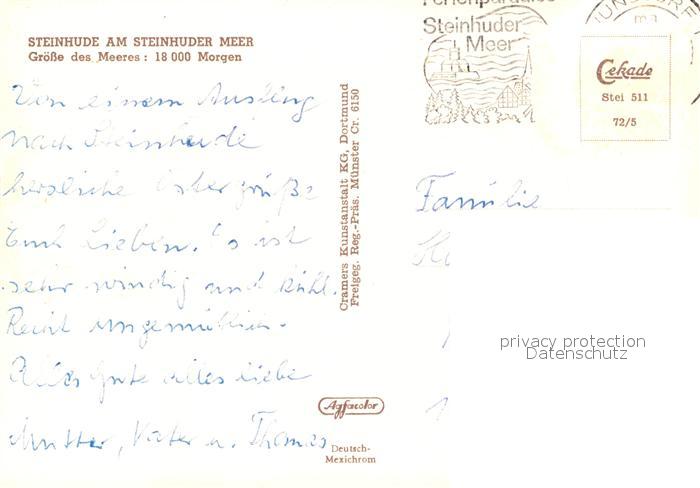 STEINHUDE AM STEINHUDER MEER
Größe des Meeres: 18 000 Morgen
Von einem Ausflug
nach Steinhude
herzliche Ostergrüße
Euch Lieben. Es ist
sehr windig und kühl.
Recht ungemütlich.
Alles Gute alles liebe
Mutter, Vater u. Thomas
Cramers Kunstanstalt KG, Dortmund
Freigeg. Reg.-Präs. Münster Cr. 6150
Agfacolor
Deutsch-
Mexichrom
Ferienparadies
Steinhuder
Meer
Cekade
Stei 511
72/5
Familie
privacy protection
Datenschutz